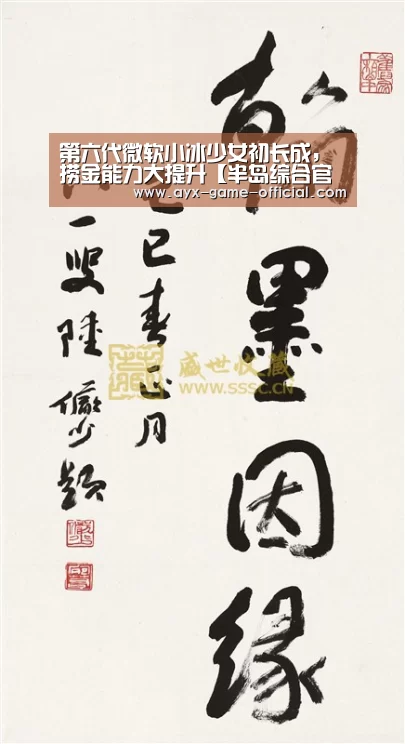 翰墨因缘
己巳春正月
一叟陆俨少题
第六代微软小冰少女初长成，
捞金能力大提升【半岛综合官
www.ayx-game-official.com
盛世收藏
WWW.SSSC.CN